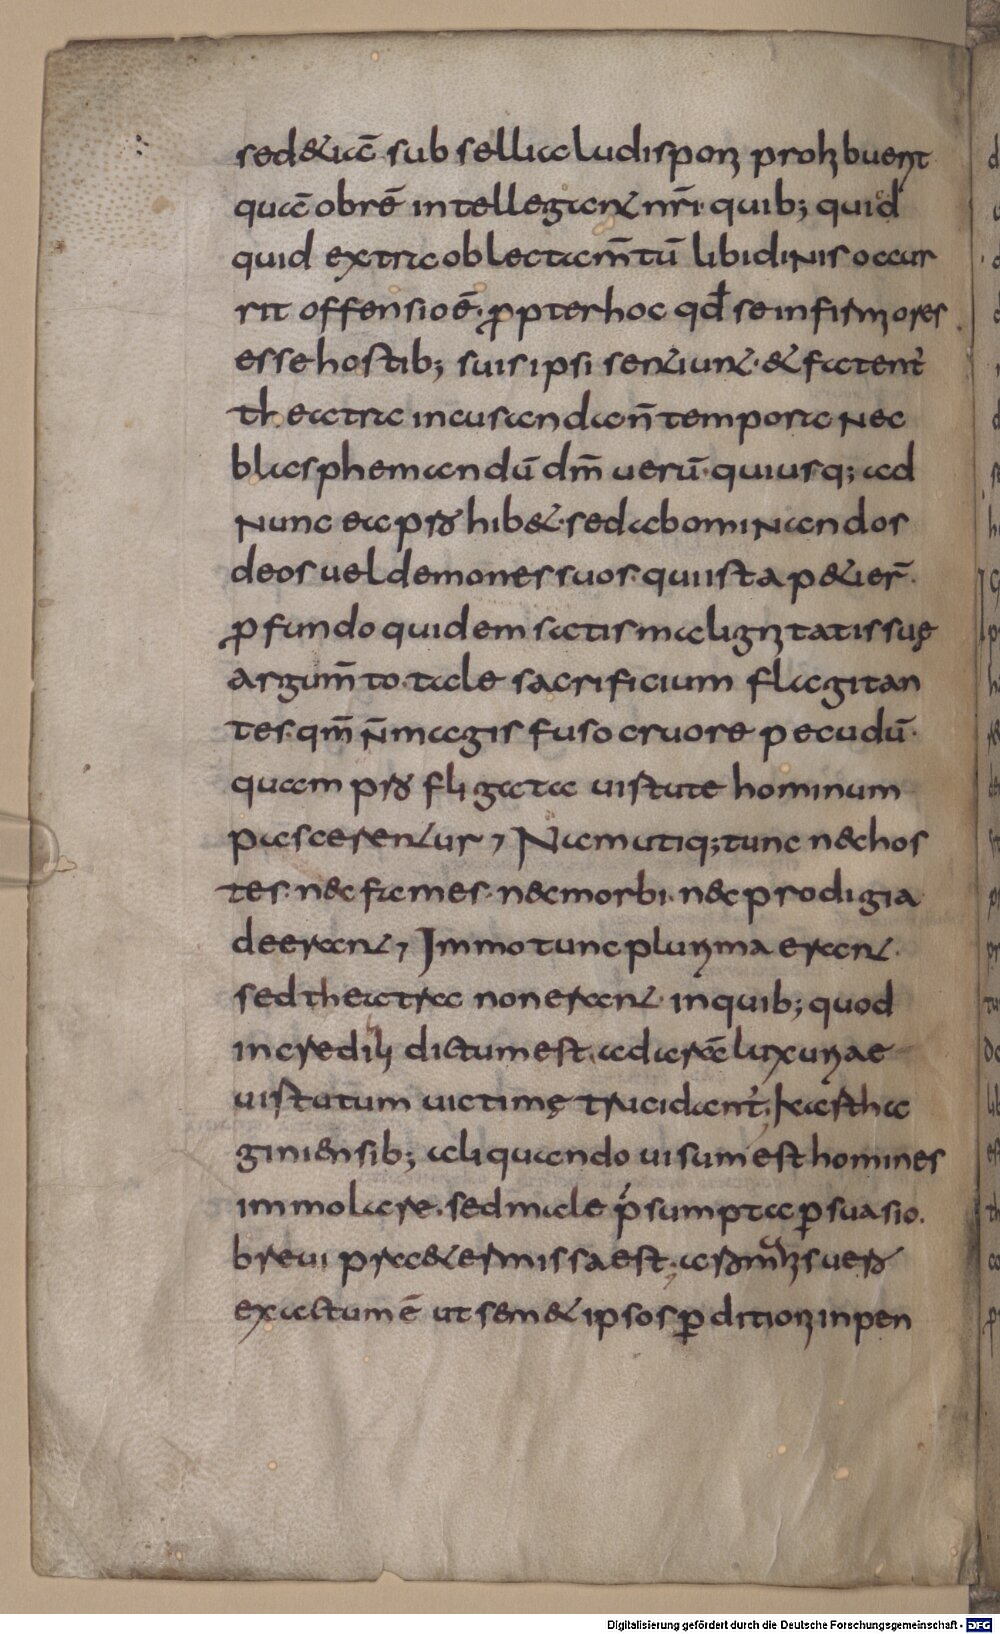 sed &iā sub sellia ludis poni prohibuerit
quā obrē intellegant nr̄i· quib; quid
quid extra oblectam̄tū libidinis occur
rit offensio ē· ꝓpter hoc qđ se infirmiores
esse hostib; suis ipsi sentiunt· & fatent᷑
theatra incusanda n̄ tempora Nec
blasphemandū dm̄ uerū· qui usq; ad
Nunc ea prohib&· sed abominandos
deos uel demones suos· qui ista p&ier̄·
ꝓfundo quidem satis malignitatis suę
argum̄to· tale sacrificium flagitan
tes· qm̄ n̄ magis fuso cruore pecudū·
quam profligata uirtute hominum
pascerentur, Nam utiq; tunc n&hos
tes· n&c fames· n&c morbi· n&c prodigia
deerant, Immo tunc plurima erant·
sed theatra non erant· in quib; quod
incredibili dictum est, ad arā luxuriae
uirtutum uictimę trucidant᷑, Kartha
giniensib; aliquando uisum est homines
immolare· sed male p̄sumpta ꝑsuasio·
breui praetermissa est; a romanis uero
exactum ē ut sem& ipsos ꝑditioni inpen
Digitalisierung gefördert durch die Deutsche Forschungsgemeinschaft - DFG